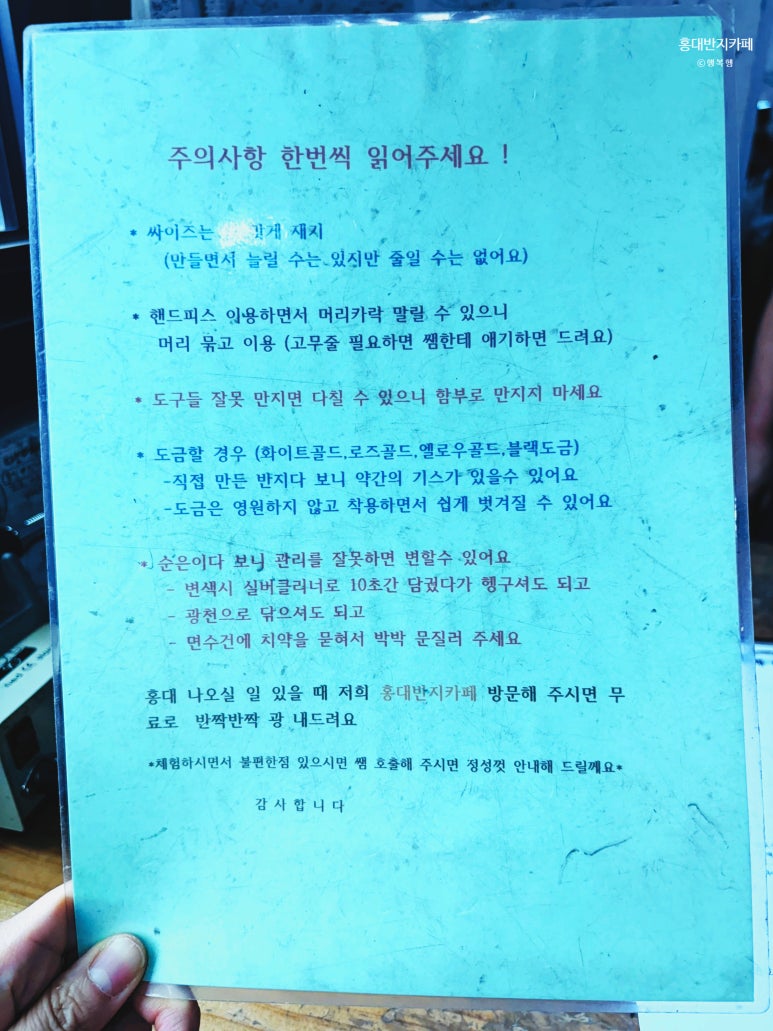 홍대반지카페
©행복헝
주의사항 한번씩 읽어주세요 !
* 싸이즈는 맞게 재기
(만들면서 늘릴 수는 있지만 줄일 수는 없어요)
* 핸드피스 이용하면서 머리카락 말릴 수 있으니
머리 묶고 이용 (고무줄 필요하면 쌤한테 얘기하면 드려요)
* 도구들 잘못 만지면 다칠 수 있으니 함부로 만지지 마세요
* 도금할 경우 (화이트골드,로즈골드,옐로우골드,블랙도금)
-직접 만든 반지다 보니 약간의 기스가 있을수 있어요
-도금은 영원하지 않고 착용하면서 쉽게 벗겨질 수 있어요
* 순은이다 보니 관리를 잘못하면 변할수 있어요
- 변색시 실버클리너로 10초간 담궜다가 헹구셔도 되고
- 광천으로 닦으셔도 되고
- 면수건에 치약을 묻혀서 박박 문질러 주세요
홍대 나오실 일 있을 때 저희 홍대반지카페 방문해 주시면 무
료로 반짝반짝 광 내드려요
*체험하시면서 불편한점 있으시면 쌤 호출해 주시면 정성껏 안내해 드릴께요*
감사합니다